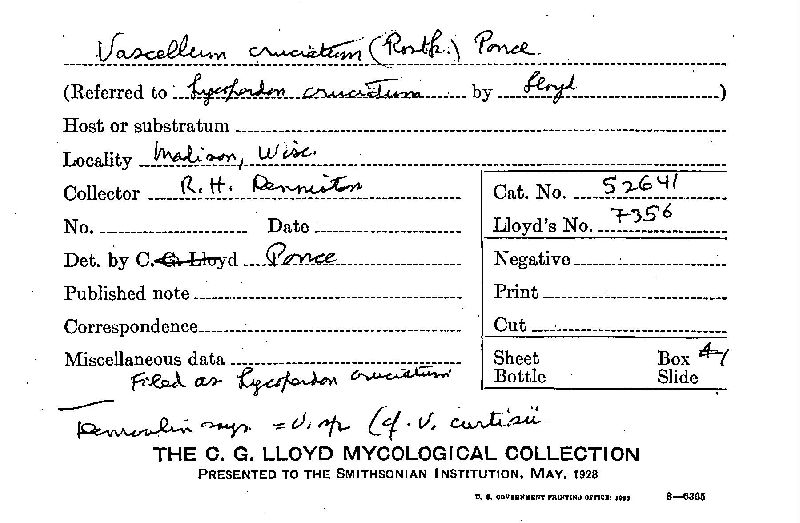 Vascellum cruciatum (Rostk.) Ponce.
(Referred to Lycoperdon cruciatum by Lloyd )
Host or substratum
Locality Madison, Wisc.
Collector R. H. Denniston
Cat. No. 52641
Lloyd's No. 7356
No. Date
Det. by C. G. Lloyd Ponce
Negative
Published note
Print
Correspondence
Cut
Miscellaneous data
Sheet Box 41
Bottle Slide
Filed as Lycoperdon cruciatum
Demoulin says = V. sp (cf. V. curtisii
THE C. G. LLOYD MYCOLOGICAL COLLECTION
PRESENTED TO THE SMITHSONIAN INSTITUTION, MAY, 1928
U. S. GOVERNMENT PRINTING OFFICE: 8—6305